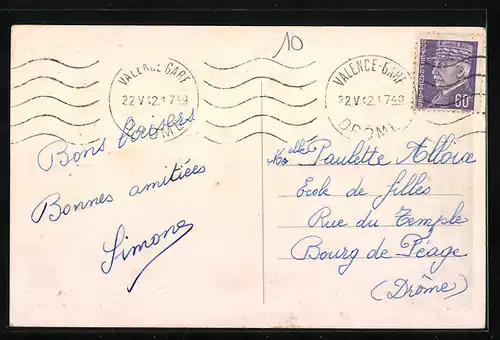 10
VALENCE-GARE
22 V 42 1749
DROME
VALENCE-GARE
22 V 42 1749
DROME
60
Bons baisers
Bonnes amitiées
Simone
Melle Paulette Alloix
Ecole de filles
Rue du Temple
Bourg de Péage
(Drôme)